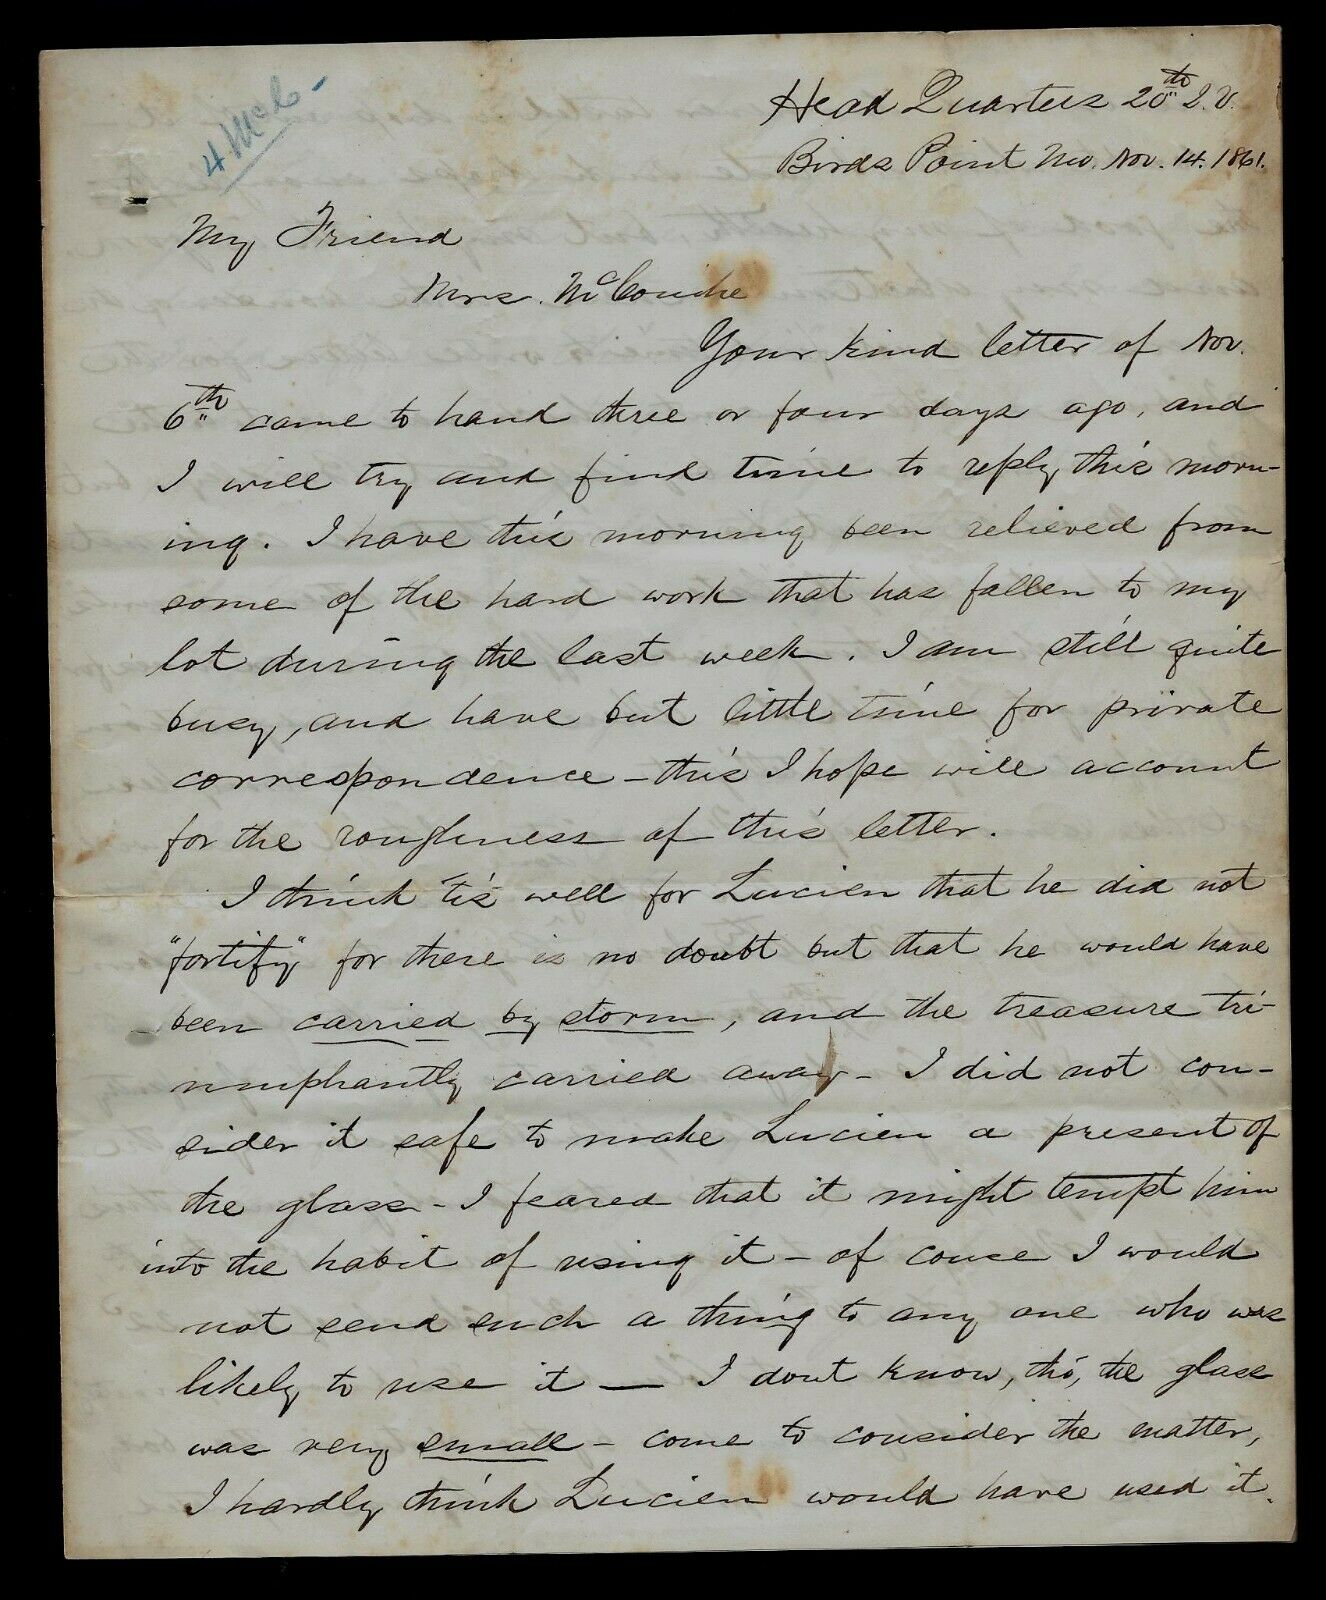 4 McC -
Head Quarters 20th I.V.
Birds Point Mo. Nov. 14. 1861.
My Friend
Mrs. McConihe
Your kind letter of Nov.
6th came to hand three or four days ago, and
I will try and find time to reply this morn-
ing. I have this morning been relieved from
some of the hard work that has fallen to my
lot during the last week. I am still quite
busy, and have but little time for private
correspondence - this I hope will account
for the roughness of this letter.
I think 'tis well for Lucien that he did not
"fortify" for there is no doubt but that he would have
been carried by storm, and the treasure tri-
umphantly carried away - I did not con-
sider it safe to make Lucien a present of
the glass - I feared that it might tempt him
into the habit of using it - of couse I would
not send such a thing to any one who was
likely to use it — I dont know, tho', the glass
was very small - come to consider the matter,
I hardly think Lucien would have used it.